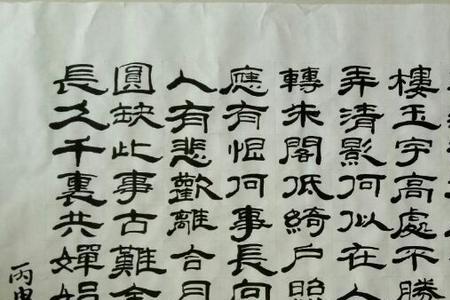 樓玉宇高處不勝
弄清影何似在人
轉朱閣低綺戶照
應有恨何事長向
人有悲歡離合月
圓缺此事古難全
長久千裏共嬋娟
丙申